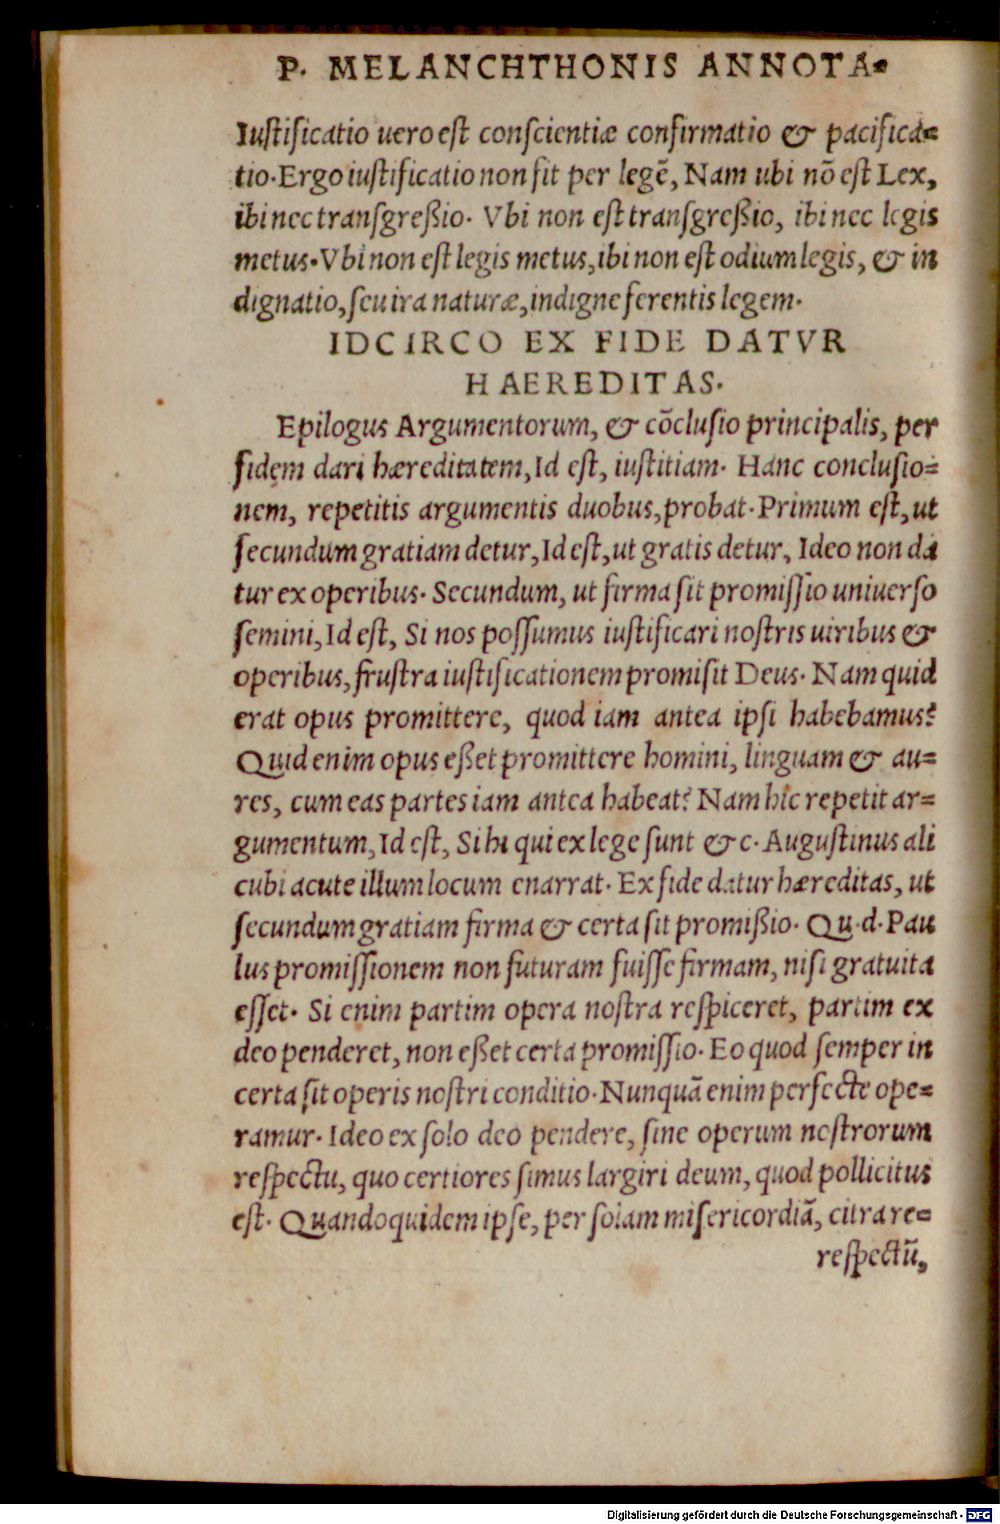 P. MELANCHTHONIS ANNOTA-
Iustificatio uero est conscientiæ confirmatio & pacifica-
tio. Ergo iustificatio non fit per legẽ, Nam ubi nõ est Lex,
ibi nec transgreßio. Vbi non est transgreßio, ibi nec legis
metus. Vbi non est legis metus, ibi non est odium legis, & in
dignatio, seu ira naturæ, indigne ferentis legem.
IDCIRCO EX FIDE DATVR
HAEREDITAS.
Epilogus Argumentorum, & cõclusio principalis, per
fidem dari hæreditatem, Id est, iustitiam. Hanc conclusio-
nem, repetitis argumentis duobus, probat. Primum est, ut
secundum gratiam detur, Id est, ut gratis detur, Ideo non da
tur ex operibus. Secundum, ut firma sit promissio uniuerso
semini, Id est, Si nos possumus iustificari nostris uiribus &
operibus, frustra iustificationem promisit Deus. Nam quid
erat opus promittere, quod iam antea ipsi habebamus?
Quid enim opus eßet promittere homini, linguam & au-
res, cum eas partes iam antea habeat? Nam hic repetit ar-
gumentum, Id est, Si hi qui ex lege sunt &c. Augustinus ali
cubi acute illum locum enarrat. Ex fide datur hæreditas, ut
secundum gratiam firma & certa sit promißio. Qu.d. Pau
lus promissionem non futuram fuisse firmam, nisi gratuita
esset. Si enim partim opera nostra respiceret, partim ex
deo penderet, non eßet certa promissio. Eo quod semper in
certa sit operis nostri conditio. Nunquã enim perfecte ope-
ramur. Ideo ex solo deo pendere, sine operum nostrorum
respectu, quo certiores simus largiri deum, quod pollicitus
est. Quandoquidem ipse, per solam misericordiã, citra re-
respectũ,
Digitalisierung gefördert durch die Deutsche Forschungsgemeinschaft - DFG